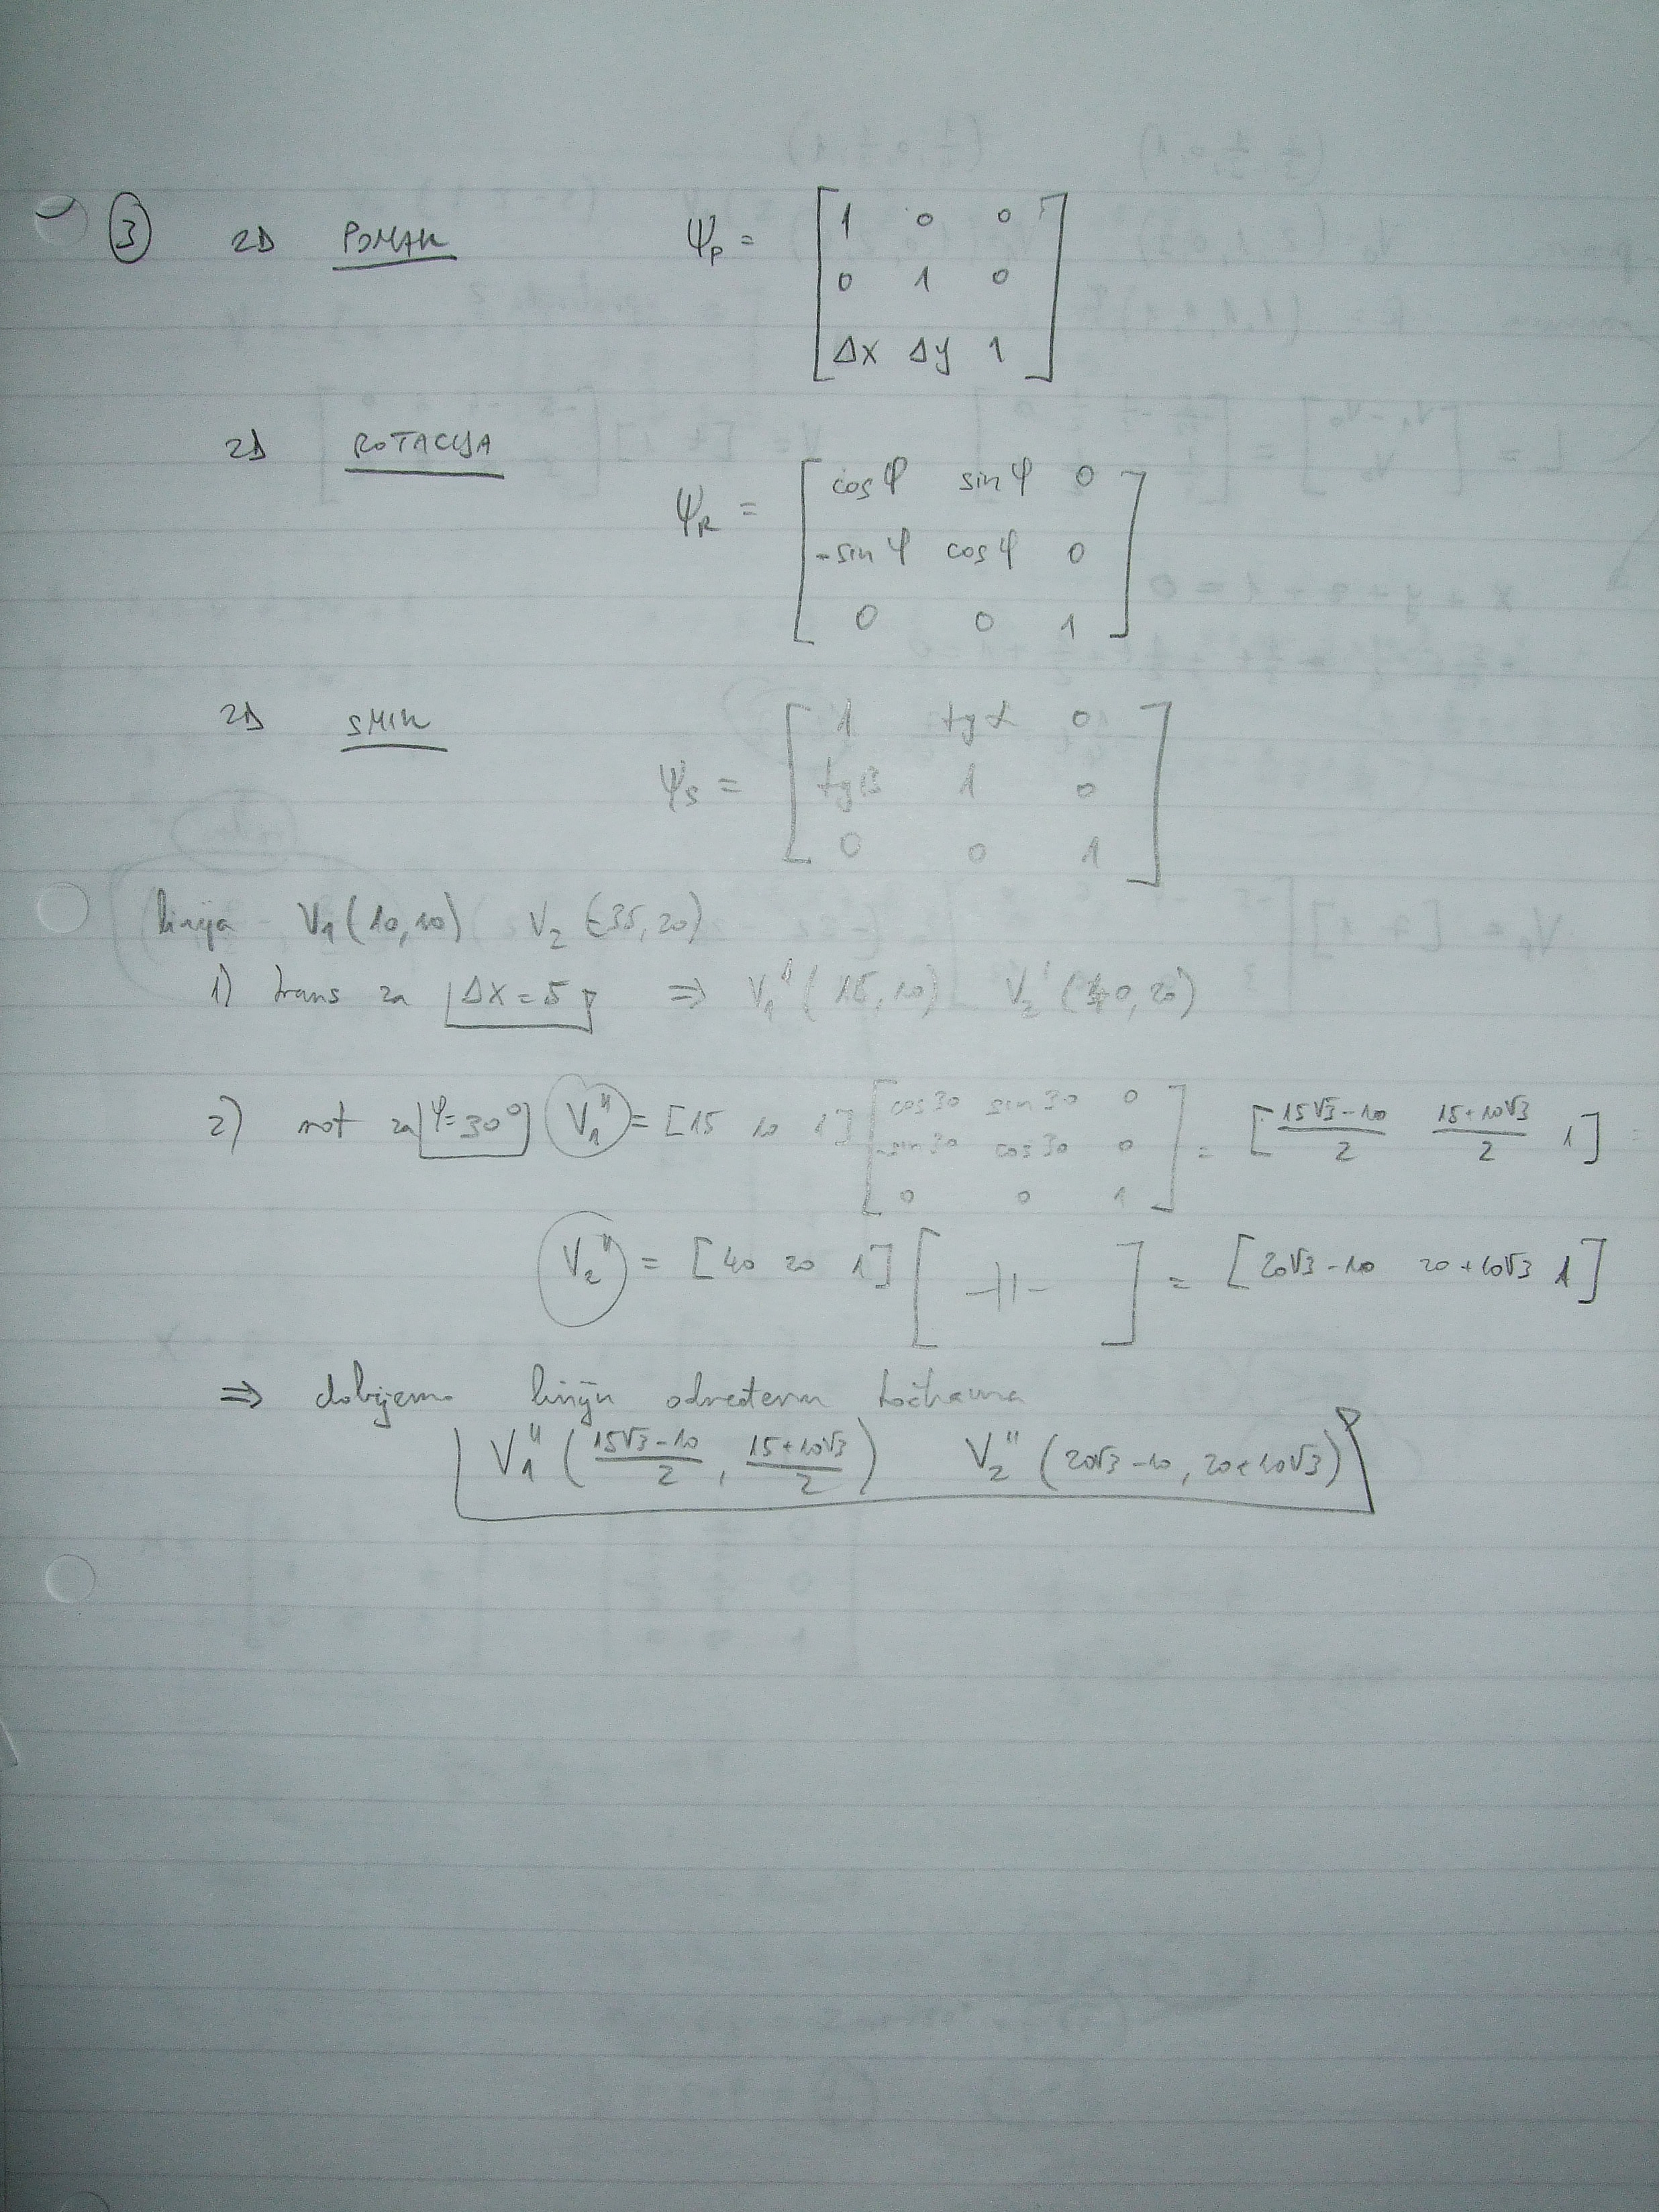 ③ 2D POMAK Ψp = [1 0 0
0 1 0
Δx Δy 1]
2D ROTACIJA
ΨR = [cosφ sinφ 0
-sinφ cosφ 0
0 0 1]
2D SMIK
ΨS = [1 tgα 0
tgβ 1 0
0 0 1]
linija V1(10,10) V2(35,20)
1) trans za Δx=5 ⇒ V1'(15,10) V2'(40,20)
2) rot za φ=30° V1'' = [15 10 1] [cos30 sin30 0
-sin30 cos30 0
0 0 1] = [(15√3-10)/2 (15+10√3)/2 1]
V2'' = [40 20 1] [-||-] = [20√3-10 20+10√3 1]
⇒ dobijemo liniju određenu točkama
V1''((15√3-10)/2, (15+10√3)/2) V2''(20√3-10, 20+10√3)